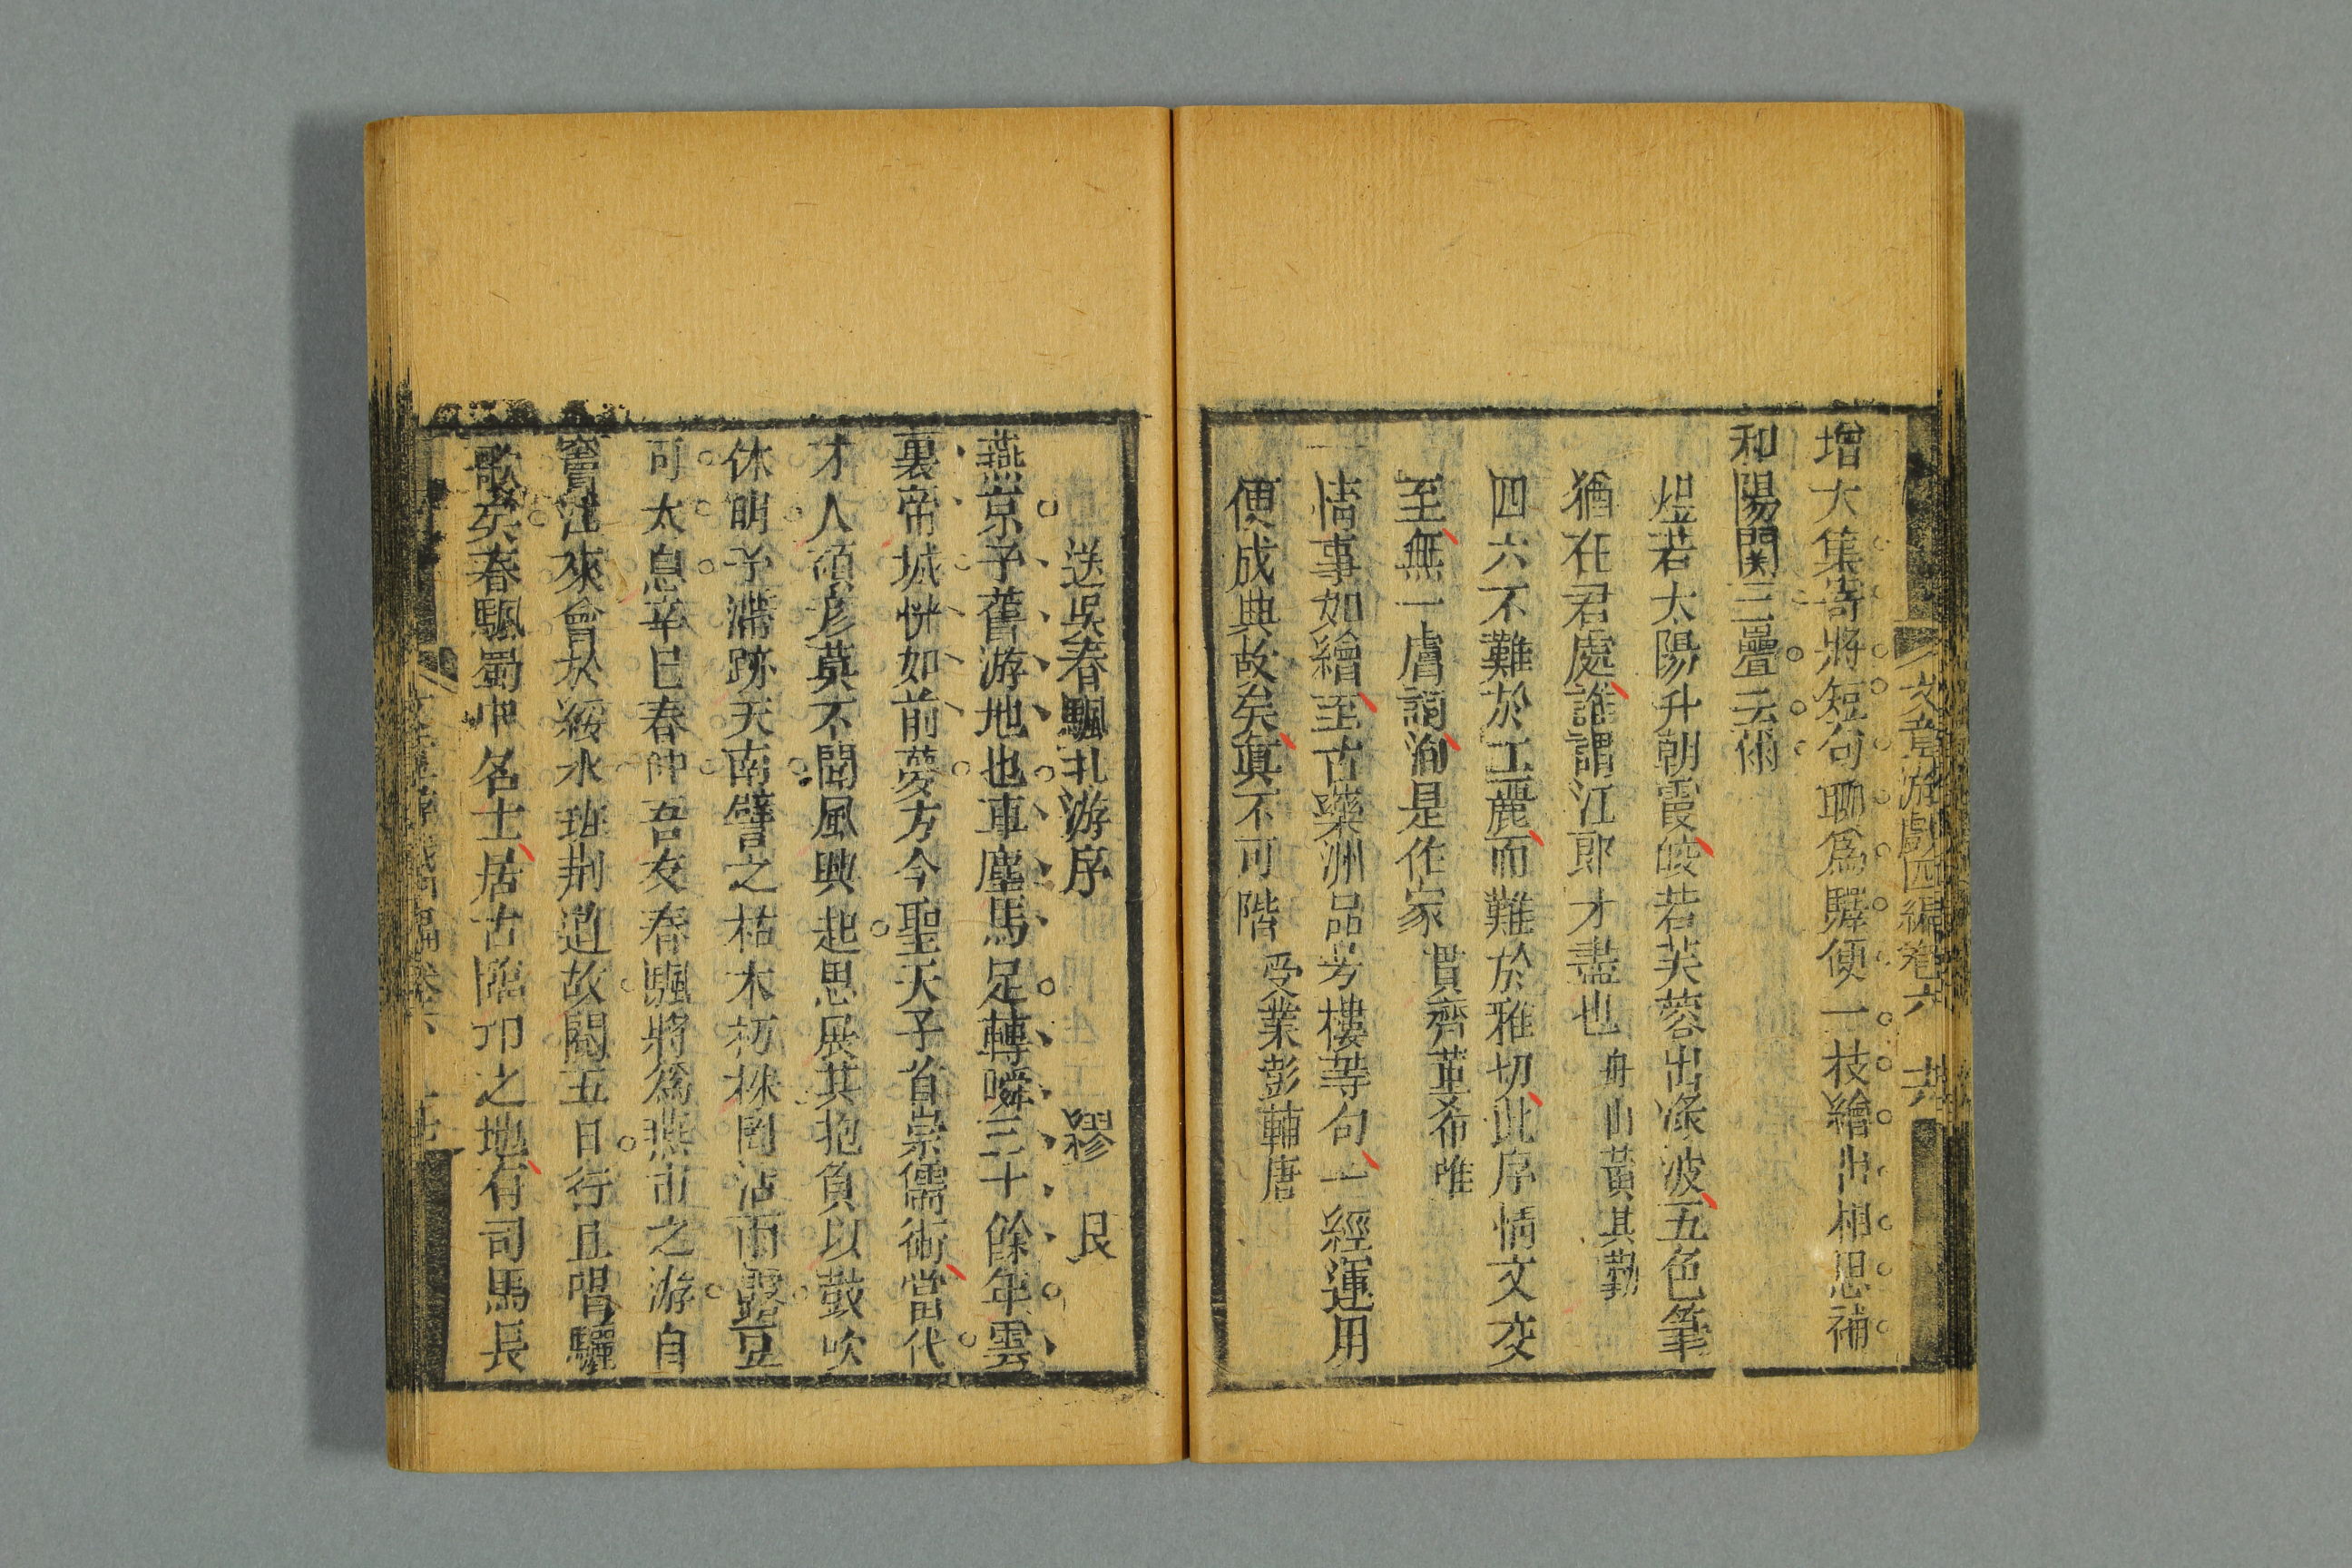 文章游戲四編卷六 共
增大集寄將短句聊爲驛便一枝繪出相思補
和陽關三疊云爾
煜若太陽升朝霞皎若芙蓉出淥波五色筆
猶在君處誰謂江郎才盡也 舟山黃其勤
四六不難於工麗而難於雅切此序情文交
至無一膚詞洵是作家 貫齊董希唯
情事如繪至古藥洲品芳樓等句一一經運用
便成典故矣眞不可階 受業彭輔唐
送吳春颿北游序 繆艮
燕京予舊游地也車塵馬足轉瞬三十餘年雲
裏帝城恍如前夢方今聖天子首崇儒術當代
才人碩彥莫不聞風興起思展其抱負以鼓吹
休明予滯跡天南譬之枯木朽株罔沾雨露豈
可太息辛巳春仲吾友春颿將爲燕市之游自
竇江來會於綏水班荆道故閱五日行且唱驪
歌矣春颿蜀中名士居古臨卭之地有司馬長